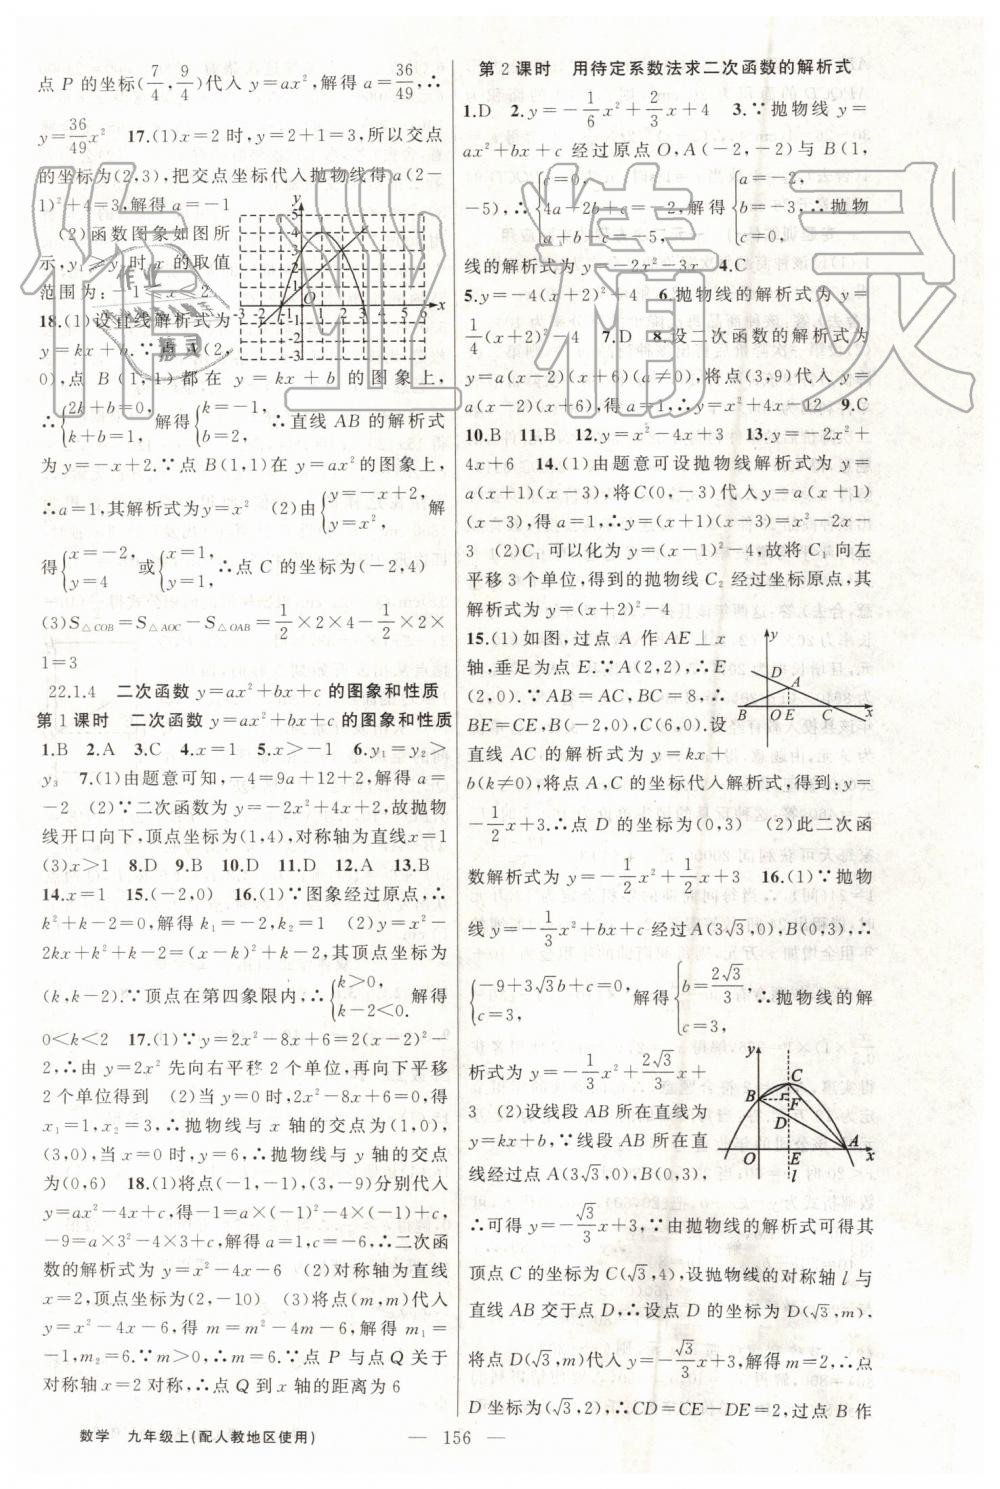 点 P 的坐标(7/4, 9/4)代入 y=ax²,解得 a=36/49,∴
y=36/49x² 17.(1)x=2 时,y=2+1=3,所以交点
的坐标为(2,3),把交点坐标代入抛物线得 a(2-
1)²+4=3,解得 a=-1
(2)函数图象如图所
示,y₁≥y₂ 时 x 的取值
范围为:-1≤x≤2
18.(1)设直线解析式为
y=kx+b.∵点 A(2,
0),点 B(1,1)都在 y=kx+b 的图象上,
∴{2k+b=0, k+b=1, 解得{k=-1, b=2, ∴直线 AB 的解析式
为 y=-x+2.∵点 B(1,1)在 y=ax² 的图象上,
∴a=1,其解析式为y=x² (2)由{y=-x+2, y=x², 解
得{x=-2, y=4 或{x=1, y=1, ∴点 C 的坐标为(-2,4)
(3)S△COB=S△AOC-S△OAB=1/2×2×4-1/2×2×
1=3
22.1.4 二次函数 y=ax²+bx+c 的图象和性质
第 1 课时 二次函数 y=ax²+bx+c 的图象和性质
1.B 2.A 3.C 4.x=1 5.x>-1 6.y₁=y₂>
y₃ 7.(1)由题意可知,-4=9a+12+2,解得 a=
-2 (2)∵二次函数为 y=-2x²+4x+2,故抛物
线开口向下,顶点坐标为(1,4),对称轴为直线x=1
(3)x>1 8.D 9.B 10.D 11.D 12.A 13.B
14.x=1 15.(-2,0) 16.(1)∵图象经过原点,∴
k²+k-2=0,解得 k₁=-2,k₂=1 (2)y=x²-
2kx+k²+k-2=(x-k)²+k-2,其顶点坐标为
(k,k-2).∵顶点在第四象限内,∴{k>0, k-2<0. 解得
0<k<2 17.(1)∵y=2x²-8x+6=2(x-2)²-
2,∴由 y=2x² 先向右平移 2 个单位,再向下平移
2 个单位得到 (2)当 y=0 时,2x²-8x+6=0,得
x₁=1,x₂=3,∴抛物线与 x 轴的交点为(1,0),
(3,0),当 x=0 时,y=6,∴抛物线与 y 轴的交点
为(0,6) 18.(1)将点(-1,-1),(3,-9)分别代入
y=ax²-4x+c,得-1=a×(-1)²-4×(-1)+c,
-9=a×3²-4×3+c,解得 a=1,c=-6,∴二次函
数的解析式为 y=x²-4x-6 (2)对称轴为直线
x=2,顶点坐标为(2,-10) (3)将点(m,m)代入
y=x²-4x-6,得 m=m²-4m-6,解得 m₁=
-1,m₂=6.∵m>0,∴m=6.∵点 P 与点 Q 关于
对称轴 x=2 对称,∴点 Q 到 x 轴的距离为 6
第 2 课时 用待定系数法求二次函数的解析式
1.D 2.y=-1/6x²+2/3x+4 3.∵抛物线 y=
ax²+bx+c 经过原点 O,A(-2,-2)与 B(1,
-5),∴{c=0, 4a-2b+c=-2, a+b+c=-5, 解得{a=-2, b=-3, c=0, ∴抛物
线的解析式为 y=-2x²-3x 4.C
5.y=-4(x+2)²+4 6.抛物线的解析式为 y=
1/4(x-2)² 7.D 8.设二次函数的解析式为
y=a(x-2)(x+6)(a≠0),将点(3,9)代入 y=
a(x-2)(x+6),得 a=1,∴y=x²+4x-12 9.C
10.B 11.B 12.y=x²-4x+3 13.y=-2x²+
4x+6 14.(1)由题意可设抛物线解析式为 y=
a(x+1)(x-3),将 C(0,-3)代入 y=a(x+1)
(x-3),得 a=1,∴y=(x+1)(x-3)=x²-2x-
3 (2)C₁ 可以化为 y=(x-1)²-4,故将 C₁ 向左
平移 3 个单位,得到的抛物线 C₂ 经过坐标原点,其
解析式为 y=(x+2)²-4
15.(1)如图,过点 A 作 AE⊥x
轴,垂足为点 E.∵A(2,2),∴E
(2,0).∵AB=AC,BC=8,∴
BE=CE,B(-2,0),C(6,0).设
直线 AC 的解析式为 y=kx+
b(k≠0),将点 A,C 的坐标代入解析式,得到:y=
-1/2x+3,∴点 D 的坐标为(0,3) (2)此二次函
数解析式为 y=-1/2x²+1/2x+3 16.(1)∵抛物
线 y=-1/3x²+bx+c 经过A(3√3,0),B(0,3),∴
{-9+3√3b+c=0, c=3, 解得{b=2√3/3, c=3, ∴抛物线的解
析式为 y=-1/3x²+2√3/3x+
3 (2)设线段 AB 所在直线为
y=kx+b,∵线段 AB 所在直
线经过点 A(3√3,0),B(0,3),
∴可得 y=-√3/3x+3,∵由抛物线的解析式可得其
顶点 C 的坐标为 C(√3,4),设抛物线的对称轴 l 与
直线 AB 交于点 D,∴设点 D 的坐标为 D(√3,m).
将点 D(√3,m)代入 y=-√3/3x+3,解得 m=2,∴点
D 坐标为(√3,2),∴CD=CE-DE=2,过点 B 作
数学 九年级上(配人教地区使用)
— 156 —